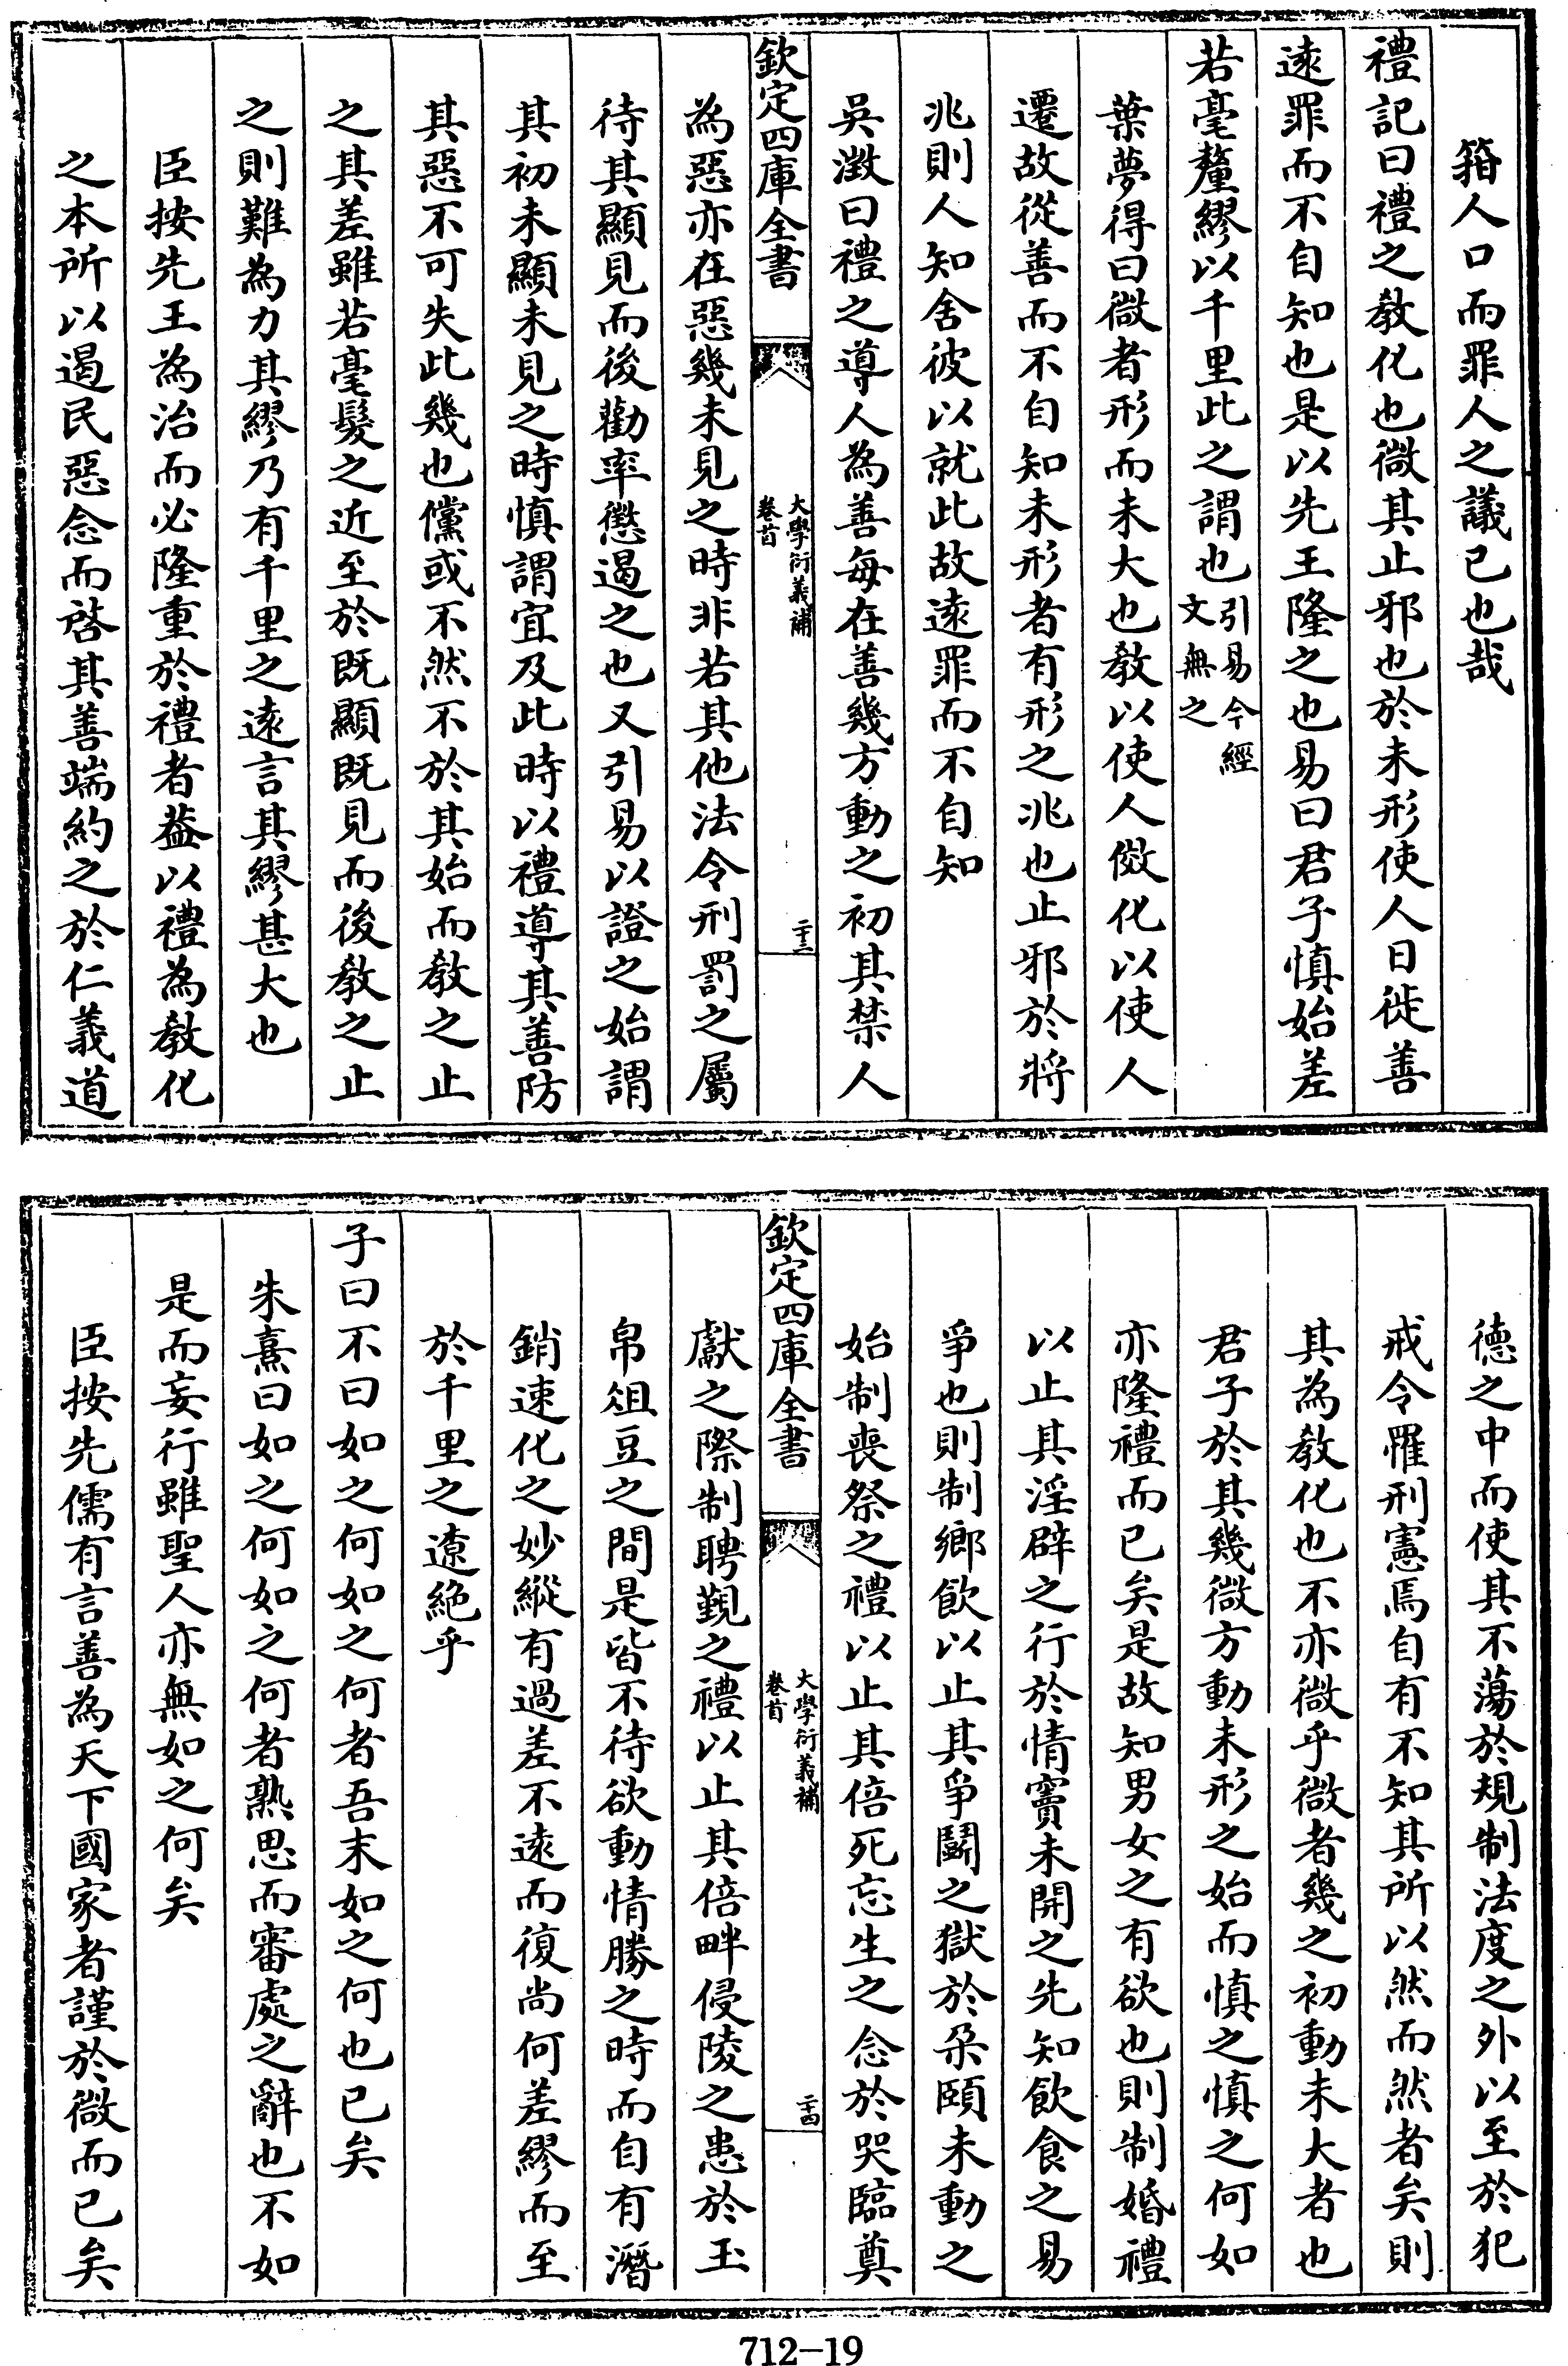 箝人口而罪人之議已也哉
禮記曰禮之教化也微其止邪也於未形使人日徙善
遠罪而不自知也是以先王隆之也易曰君子慎始差
若毫釐繆以千里此之謂也引易今經文無之
葉夢得曰微者形而未大也教以使人傚化以使人
遷故從善而不自知未形者有形之兆也止邪於將
兆則人知舍彼以就此故遠罪而不自知
吳澂曰禮之導人為善每在善幾方動之初其禁人
欽定四庫全書
大學衍義補
卷首
二十三
為惡亦在惡幾未見之時非若其他法令刑罰之屬
待其顯見而後勸率懲遏之也又引易以證之始謂
其初未顯未見之時慎謂宜及此時以禮導其善防
其惡不可失此幾也儻或不然不於其始而教之止
之其差雖若毫髮之近至於既顯既見而後教之止
之則難為力其繆乃有千里之遠言其繆甚大也
臣按先王為治而必隆重於禮者葢以禮為教化
之本所以遏民惡念而啓其善端約之於仁義道
德之中而使其不蕩於規制法度之外以至於犯
戒令罹刑憲焉自有不知其所以然而然者矣則
其為教化也不亦微乎微者幾之初動未大者也
君子於其幾微方動未形之始而慎之慎之何如
亦隆禮而已矣是故知男女之有欲也則制婚禮
以止其淫辟之行於情竇未開之先知飲食之易
爭也則制鄉飲以止其爭鬭之獄於朶頤未動之
始制喪祭之禮以止其倍死忘生之念於哭臨奠
欽定四庫全書
大學衍義補
卷首
二十四
獻之際制聘覲之禮以止其倍畔侵陵之患於玉
帛俎豆之間是皆不待欲動情勝之時而自有潛
銷速化之妙縱有過差不遠而復尚何差繆而至
於千里之遼絕乎
子曰不曰如之何如之何者吾末如之何也已矣
朱熹曰如之何如之何者熟思而審處之辭也不如
是而妄行雖聖人亦無如之何矣
臣按先儒有言善為天下國家者謹於微而已矣
712-19